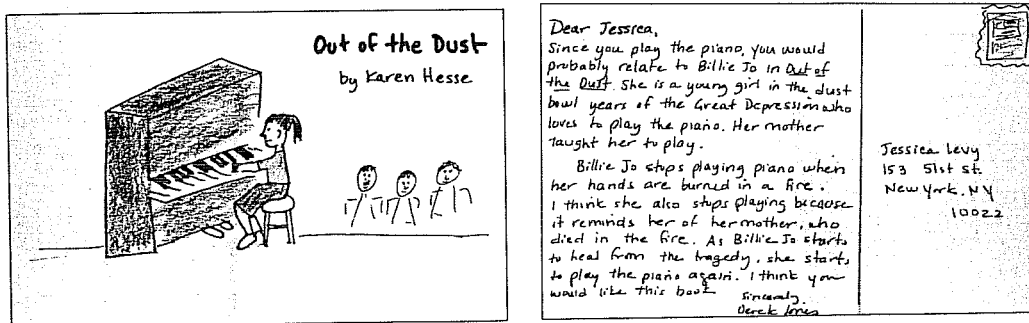 Out of the Dust
by Karen Hesse
Dear Jessica,
Since you play the piano, you would
probably relate to Billie Jo in Out of
the Dust. She is a young girl in the dust
bowl years of the Great Depression who
loves to play the piano. Her mother
taught her to play.
Billie Jo stops playing piano when
her hands are burned in a fire.
I think she also stops playing because
it reminds her of her mother, who
died in the fire. As Billie Jo starts
to heal from the tragedy, she starts
to play the piano again. I think you
would like this book
Sincerely,
Derek Jones
Jessica Levy
153 51st St.
New York, NY
10022